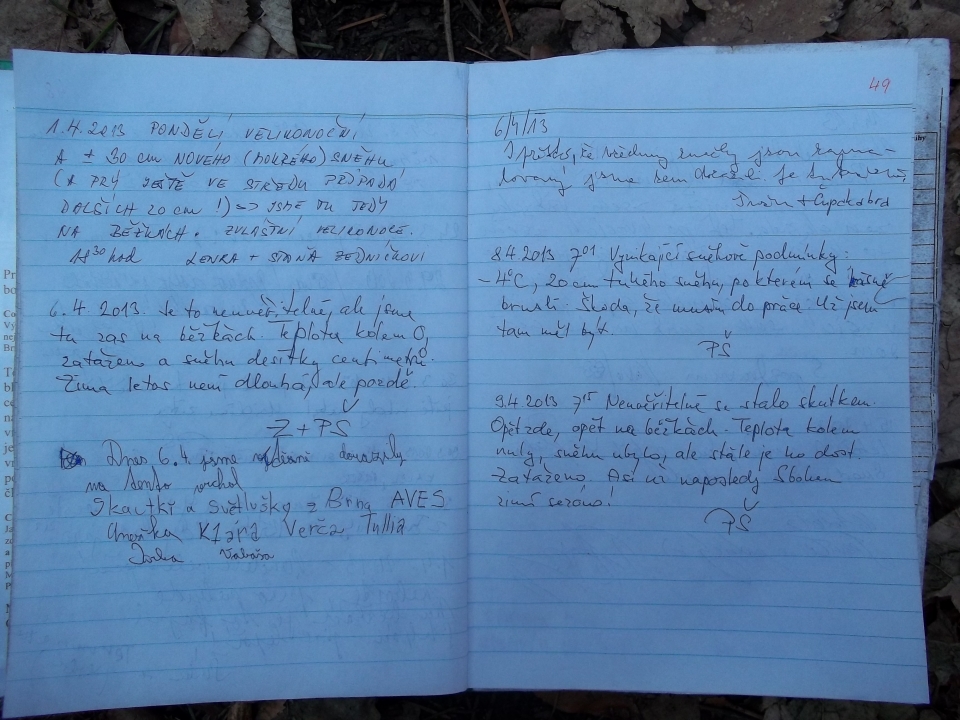 1.4.2013 PONDĚLÍ VELIKONOČNÍ
A ± 30 cm NOVÉHO (MOKRÉHO) SNĚHU
(A PRÝ JEŠTĚ VE STŘEDU PŘIPADÁ
DALŠÍCH 20 cm !) => JSME TU TEDY
NA BĚŽKÁCH. ZVLÁŠTNÍ VELIKONOCE.
18³⁰ hod LENKA + STAŇA ZEDNÍČKOVI
6.4. 2013. Je to neuvěřitelné, ale jsme
tu zas na běžkách. Teplota kolem 0,
zataženo a sněhu desítky centimetrů.
Zima letos není dlouhá, ale pozdě.
Z + PŠ
Dnes 6.4. jsme dorazily
na tento vrchol
Skautki a světlušky z Brna AVES
Anežka Klára Verča Tullia
49
6/4/13
I přes to, že všechny značky jsou zasně-
jsme sem
8.4 2013 7⁰¹ Vynikající sněhové podmínky:
-4°C, 20 cm tuhého sněhu, po kterém se krásně
bruslí. Škoda, že musím do práce. Už jsem
tam měl být.
PŠ
9.4 2013 7¹⁵ Neuvěřitelné se stalo skutkem.
Opět zde, opět na běžkách. Teplota kolem
nuly, sněhu ubylo, ale stále je ho dost.
Zataženo. Asi už naposledy. Sbohem
zimní sezóno!
PŠ